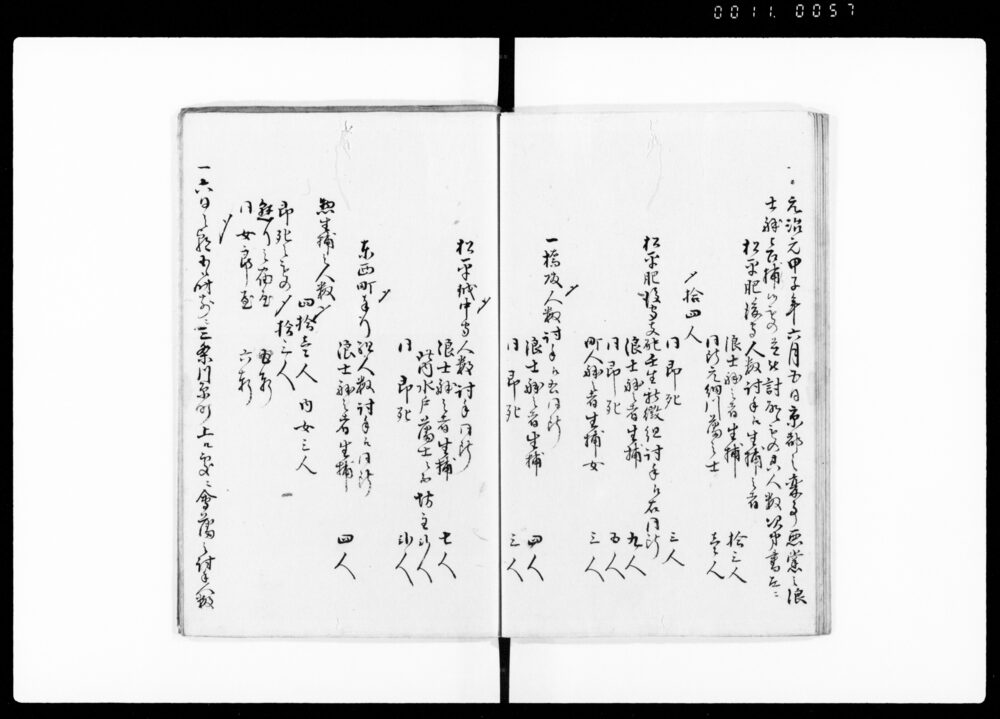 0011.0057
一元治元甲子年六月五日京都之変事悪党之浪
士躰之召捕候者并討取候者人数次第書左ニ
松平肥後守人数討手ニ生捕之者
浪士躰之者生捕 拾三人
同所元細川藩之士 壱人
〆拾四人
同即死 三人
松平肥後守支配壬生新徴組討手ニ右同断
浪士躰之者生捕 九人
同即死 五人
町人躰之者生捕女 三人
一橋殿人数討手同断
浪士躰之者生捕 四人
同即死 三人
松平越中守人数討手同断
浪士躰之者生捕 七人
内水戸藩士 坊主 弐人
同即死 弐人
東西町奉行組人数討手同断
浪士躰之者生捕 四人
惣生捕之人数〆
四拾壱人 内女三人
即死之者〆拾三人
五軒
同女郎屋 六軒
一六日之朝 三条川原町上ル処ニ会藩之討手人数